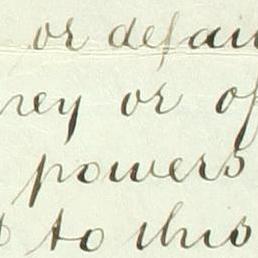 or defau
ney or of
powers
to this